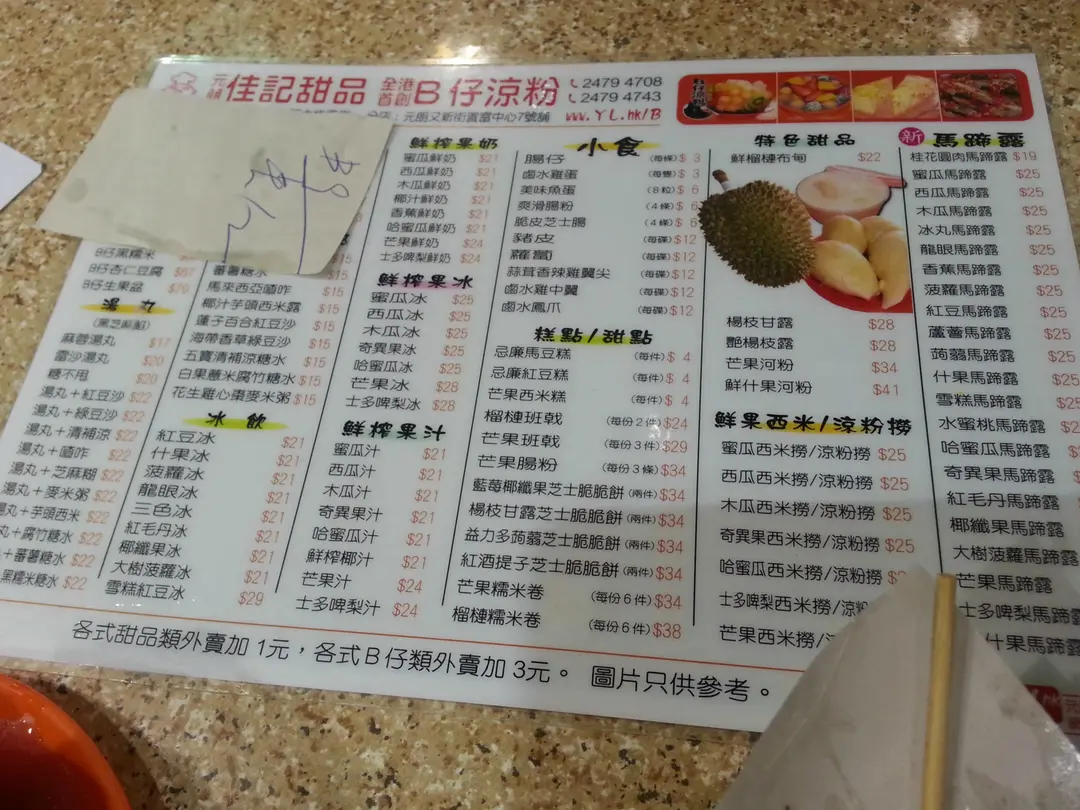 元朗 佳記甜品 全港首創 B仔涼粉 2479 4708
2479 4743
分店：元朗又新街置富中心7號舖 www.YL.hk/B
B仔黑糯米
B仔杏仁豆腐
B仔生果盆
湯丸
(黑芝麻餡)
麻蓉湯丸 $17
雷沙湯丸 $20
糖不甩 $20
湯丸＋紅豆沙 $22
湯丸＋綠豆沙 $22
湯丸＋清補涼 $22
湯丸＋喳咋 $22
湯丸＋芝麻糊 $22
湯丸＋麥米粥 $22
湯丸＋芋頭西米 $22
丸＋腐竹糖水 $22
＋蕃薯糖水 $22
黑糯米糖水 $22
蕃薯糖水
馬來西亞喳咋 $15
椰汁芋頭西米露 $15
蓮子百合紅豆沙 $15
海帶香草綠豆沙 $15
五寶清補涼糖水 $15
白果薏米腐竹糖水 $15
花生雞心棗麥米粥 $15
冰飲
紅豆冰 $21
什果冰 $21
菠蘿冰 $21
龍眼冰 $21
三色冰 $21
紅毛丹冰 $21
椰纖果冰 $21
大樹菠蘿冰 $21
雪糕紅豆冰 $29
鮮搾果奶
蜜瓜鮮奶 $21
西瓜鮮奶 $21
木瓜鮮奶 $21
椰汁鮮奶 $21
香蕉鮮奶 $21
哈蜜瓜鮮奶 $21
芒果鮮奶 $24
士多啤梨鮮奶 $24
鮮搾果冰
蜜瓜冰 $25
西瓜冰 $25
木瓜冰 $25
奇異果冰 $25
哈蜜瓜冰 $25
芒果冰 $28
士多啤梨冰 $28
鮮搾果汁
蜜瓜汁 $21
西瓜汁 $21
木瓜汁 $21
奇異果汁 $21
哈蜜瓜汁 $21
鮮搾椰汁 $21
芒果汁 $24
士多啤梨汁 $24
小食
腸仔 (每條) $ 3
鹵水雞蛋 (每隻) $ 3
美味魚蛋 (8粒) $ 6
爽滑腸粉 (4條) $ 6
脆皮芝士腸 (4條) $ 6
豬皮 (每碟) $12
蘿蔔 (每碟) $12
蒜茸香辣雞翼尖 (每碟) $12
鹵水雞中翼 (每碟) $12
鹵水鳳爪 (每碟) $12
糕點/甜點
忌廉馬豆糕 (每件) $ 4
忌廉紅豆糕 (每件) $ 4
芒果西米糕 (每件) $ 4
榴槤班戟 (每份2件) $24
芒果班戟 (每份3件) $29
芒果腸粉 (每份3條) $34
藍莓椰纖果芝士脆脆餅 (兩件) $34
楊枝甘露芝士脆脆餅 (兩件) $34
益力多蒟蒻芝士脆脆餅 (兩件) $34
紅酒提子芝士脆脆餅 (兩件) $34
芒果糯米卷 (每份6件) $34
榴槤糯米卷 (每份6件) $38
特色甜品
鮮榴槤布甸 $22
楊枝甘露 $28
艷楊枝露 $28
芒果河粉 $34
鮮什果河粉 $41
鮮果西米/涼粉撈
蜜瓜西米撈/涼粉撈 $25
西瓜西米撈/涼粉撈 $25
木瓜西米撈/涼粉撈 $25
奇異果西米撈/涼粉撈 $25
哈蜜瓜西米撈/涼粉撈
士多啤梨西米撈/涼粉
芒果西米撈/
新 馬蹄露
桂花圓肉馬蹄露 $19
蜜瓜馬蹄露 $25
西瓜馬蹄露 $25
木瓜馬蹄露 $25
冰丸馬蹄露 $25
龍眼馬蹄露 $25
香蕉馬蹄露 $25
菠蘿馬蹄露 $25
紅豆馬蹄露 $25
蘆薈馬蹄露 $25
蒟蒻馬蹄露 $25
什果馬蹄露
雪糕馬蹄露
水蜜桃馬蹄露
哈蜜瓜馬蹄露
奇異果馬蹄露
紅毛丹馬蹄露
椰纖果馬蹄露
大樹菠蘿馬蹄露
芒果馬蹄露
士多啤梨馬蹄露
什果馬蹄露
各式甜品類外賣加 1元，各式Ｂ仔類外賣加 3元。 圖片只供參考。